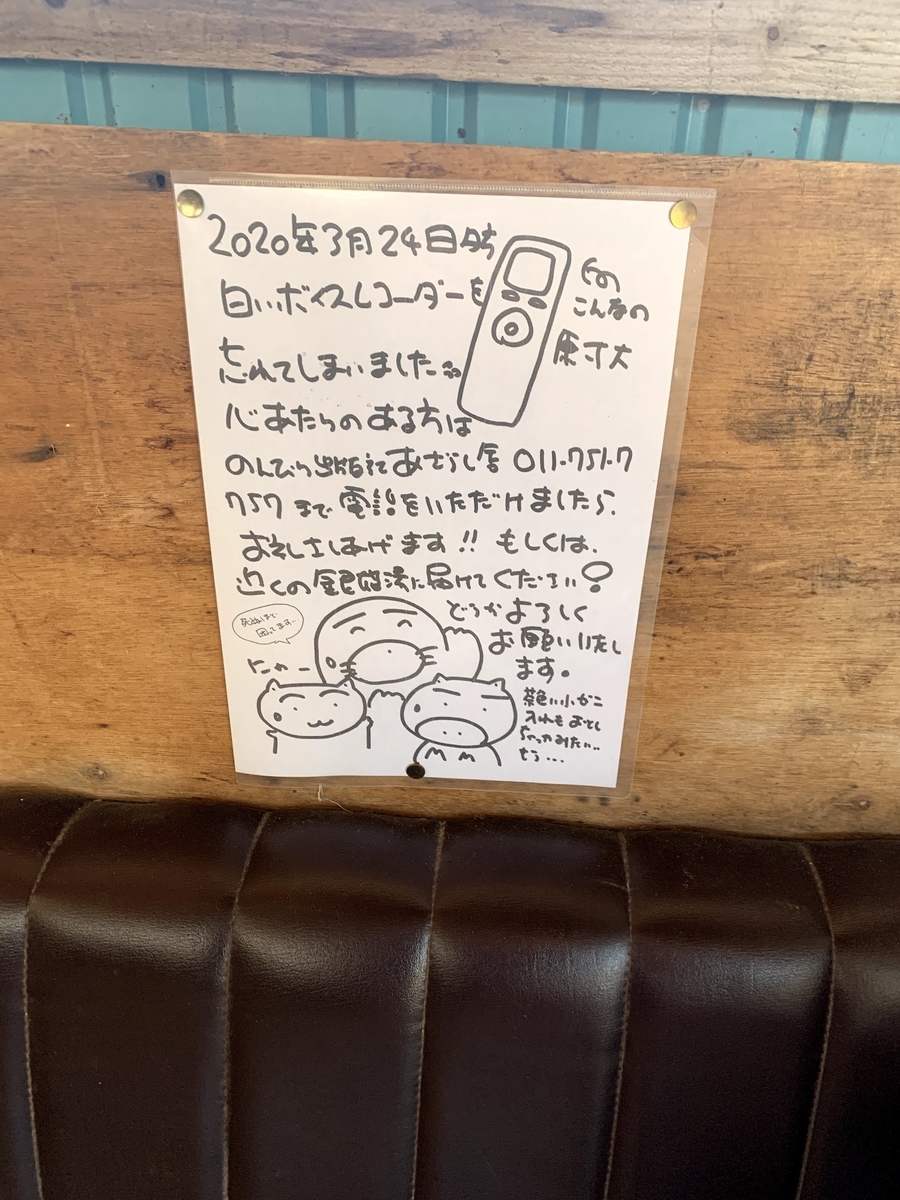 2020年3月24日夕方
白いボイスレコーダーを
忘れてしまいました
心あたりのある方は
のんびり出版社あざらし書 011-751-7
757 まで 電話をいただけましたら、
お礼さしあげます!! もしくは、
近くの 湯に届けてください
どうかよろしく
お願いいたし
ます。
この
こんなの
原寸大
死ぬほど
困ってます…
にゃー
茶色い小がこ
入れもおとし
ちゃったみたい…
もう…